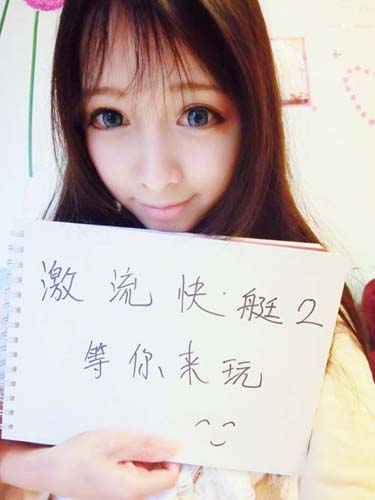 激流快艇2
等你来玩